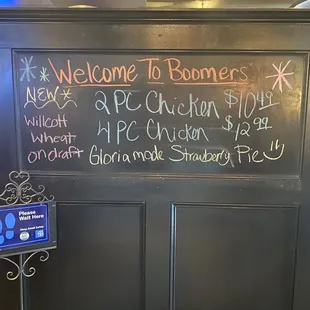 Welcome To Boomers
NEW
2 PC Chicken $10.49
Willcott
wheat
on draft
4 PC Chicken $12.99
Gloria made Strawberry Pie
Please
Wait Here